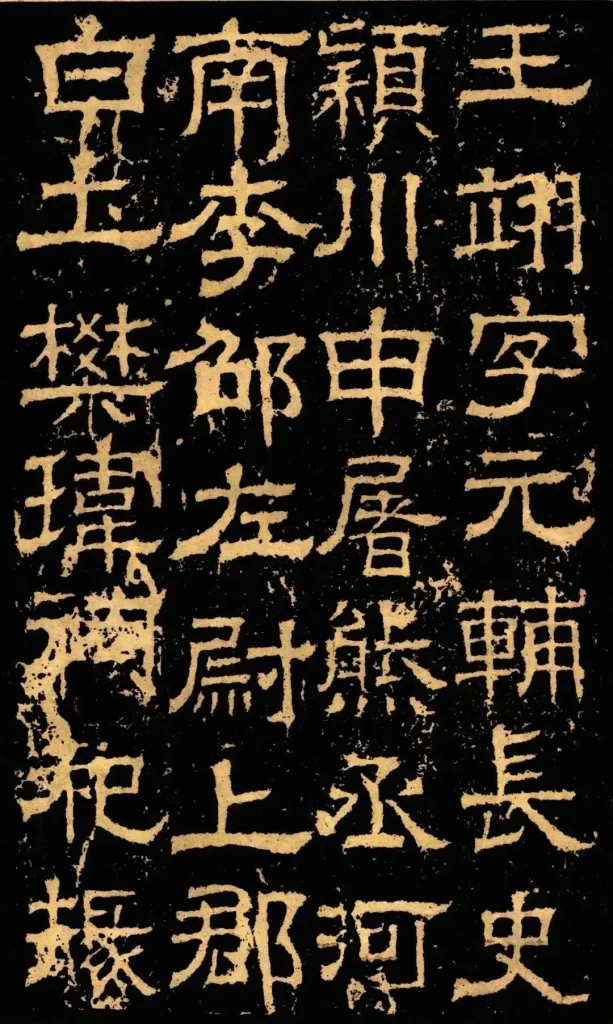 王翊字元輔長史
穎川申屠熊丞河
南李邵左尉上郡
白土樊瑋祠祀掾